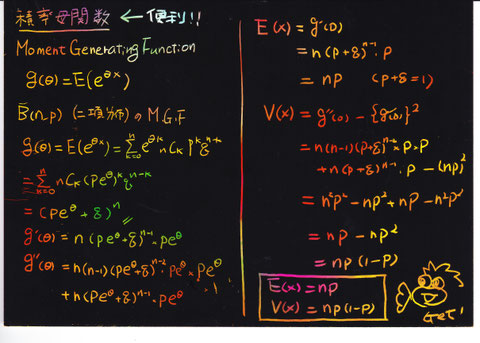 積率母関数 ← 便利!!
Moment Generating Function
g(θ) = E(e^{θx})
B(n,p) (二項分布) の M.G.F
g(θ) = E(e^{θx}) = Σ_{k=0}^{n} e^{θk} nCk p^k q^{n-k}
= Σ_{k=0}^{n} nCk (pe^θ)^k q^{n-k}
= (pe^θ + q)^n
g'(θ) = n(pe^θ+q)^{n-1}・pe^θ
g''(θ) = n(n-1)(pe^θ+q)^{n-2}・pe^θ × pe^θ
+ n(pe^θ+q)^{n-1}・pe^θ
E(x) = g'(0)
= n(p+q)^{n-1}・p
= np (p+q=1)
V(x) = g''(0) - {g'(0)}^2
= n(n-1)(p+q)^{n-2}・p・p
+ n(p+q)^{n-1}・p - (np)^2
= n²p² - np² + np - n²p²
= np - np²
= np(1-p)
E(x) = np
V(x) = np(1-p)
Get!